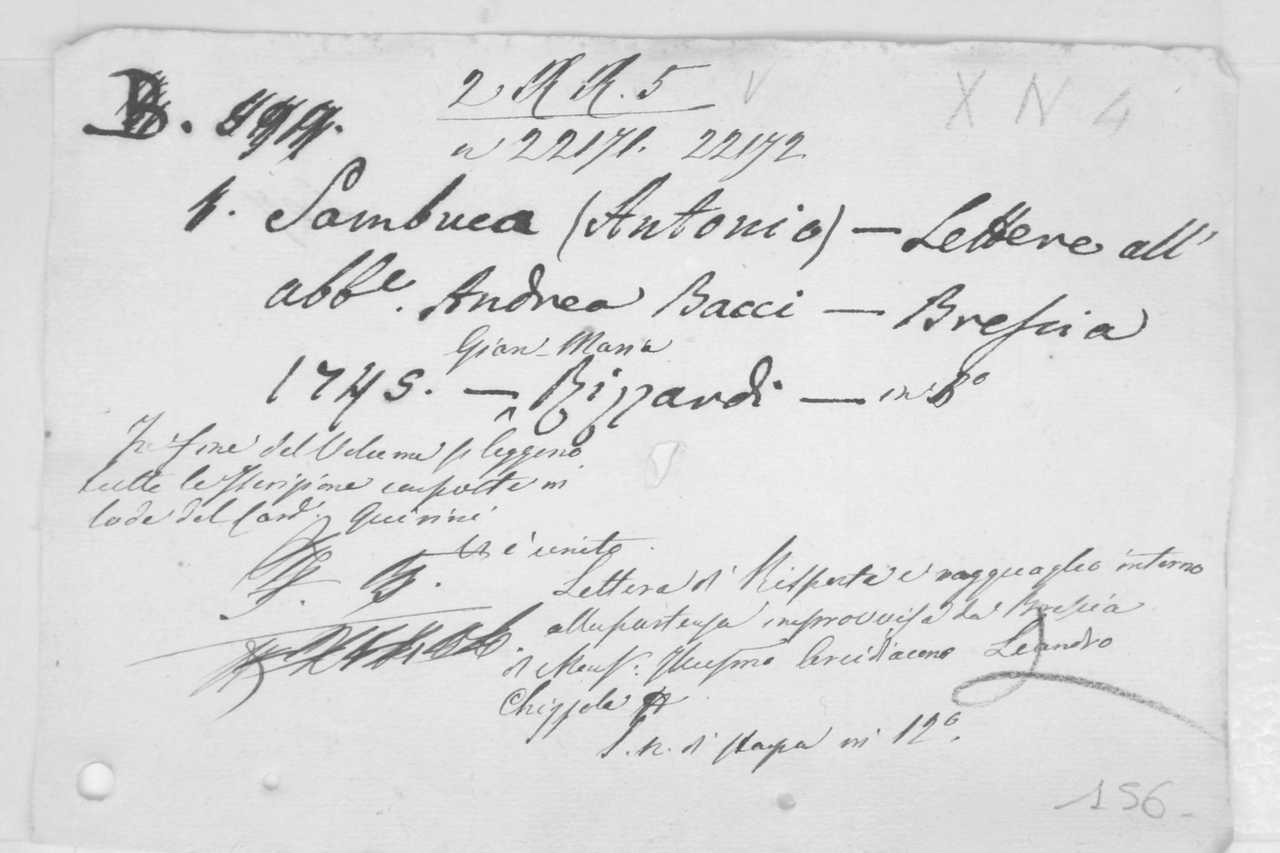 2 R R. 5 V X N 4
B. 599.
n 22171. 22172
1. Sambuca (Antonio) — Lettere all'
abb.e Andrea Bacci — Brescia
Gian-Maria
1745. — Rizzardi — in 8°
In fine del Volume si leggono
tutte le Iscrizione composte in
lode del Card. Quirini
Vi è unito
Lettera di Risposta e ragguaglio intorno
alla partenza improvvisa da Brescia
di Mons.r Arcidiacono Leandro
Chizzola
S. n. di stampa in 12°.
156